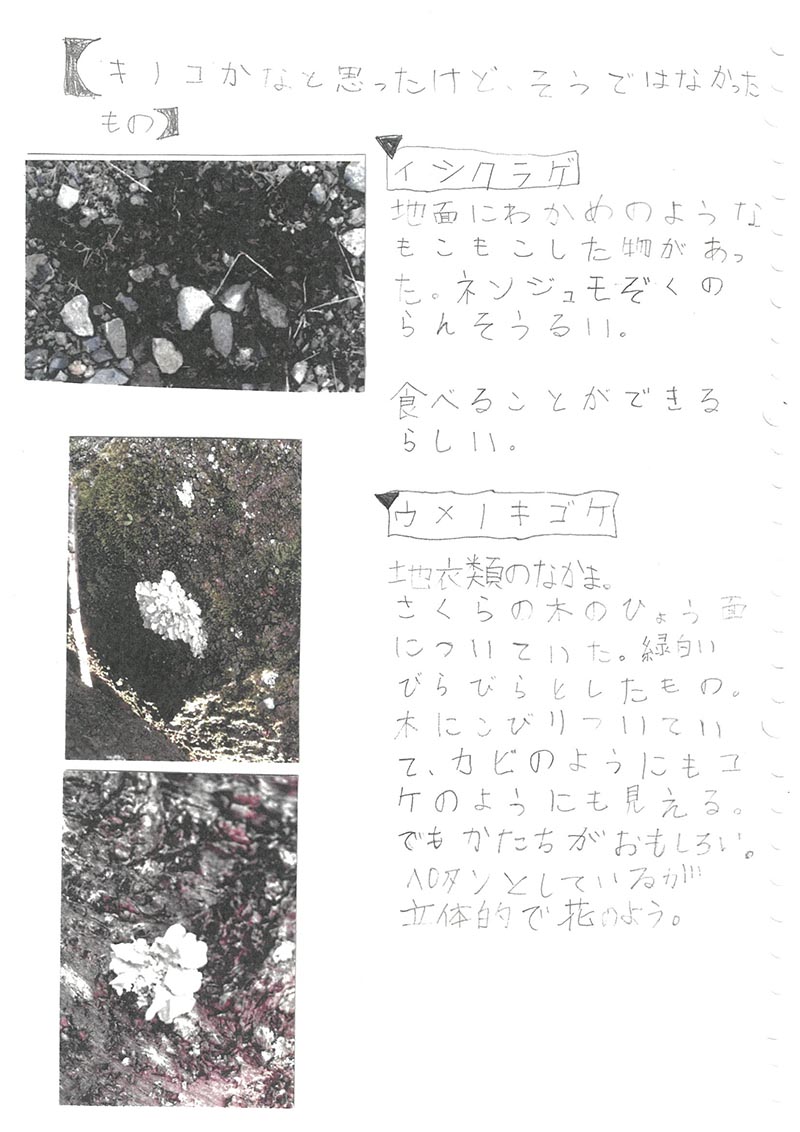 【キノコかなと思ったけど、そうではなかった
もの】
イシクラゲ
地面にわかめのような
もこもこした物があっ
た。ネンジュモぞくの
らんそうるい。
食べることができる
らしい。
ウメノキゴケ
地衣類のなかま。
さくらの木のひょう面
についていた。緑白い
びらびらとしたもの。
木にこびりついてい
て、カビのようにもコ
ケのようにも見える。
でもかたちがおもしろい。
ペタンとしているが
立体的で花のよう。